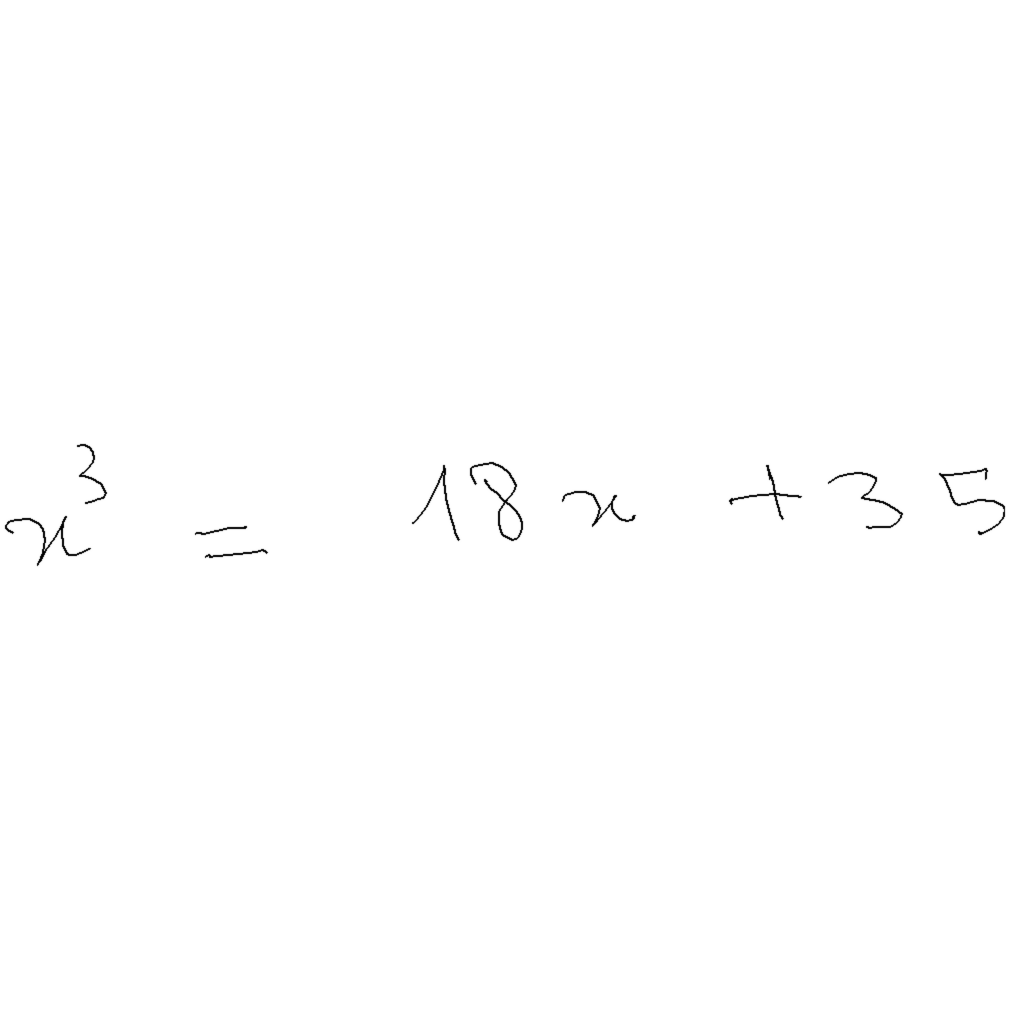 x³ = 18x + 35